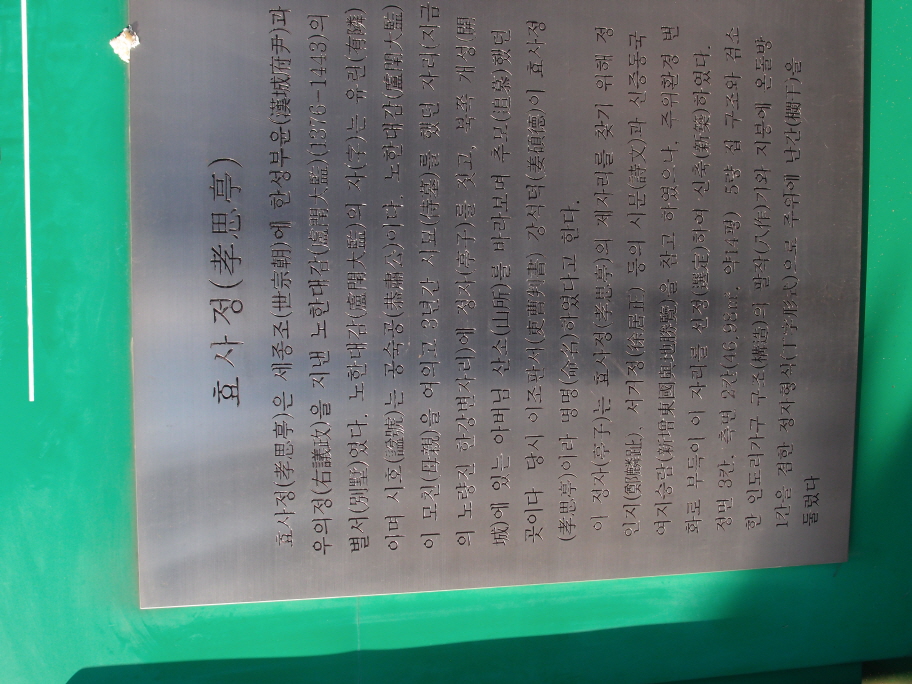 효사정(孝思亭)
효사정(孝思亭)은 세종조(世宗朝)에 한성부윤(漢城府尹)과
우의정(右議政)을 지낸 노한대감(盧閈大監)(1376-1443)의
별서(別墅)였다. 노한대감(盧閈大監)의 자(字)는 유린(有隣)
이며 시호(諡號)는 공숙공(恭肅公)이다. 노한대감(盧閈大監)
이 모친(母親)을 여의고 3년간 시묘(侍墓)를 했던 자리(지금
의 노량진 한강변자리)에 정자(亭子)를 짓고, 북쪽 개성(開
城)에 있는 아버님 산소(山所)를 바라보며 추모(追慕)했던
곳이다 당시 이조판서(吏曹判書) 강석덕(姜碩德)이 효사정
(孝思亭)이라 명명(命名)하였다고 한다.
이 정자(亭子)는 효사정(孝思亭)의 제자리를 찾기 위해 정
인지(鄭麟趾), 서거정(徐居正) 등의 시문(詩文)과 신증동국
여지승람(新增東國輿地勝覽)을 참고 하였으나, 주위환경 변
화로 부득이 이 자리를 선정(選定)하여 신축(新築)하였다.
정면 3칸, 측면 2칸(46.98㎡, 약14평) 5량 집 구조와 검소
한 민도리가구 구조(構造)의 팔작(八作)기와 지붕에 온돌방
1칸을 겸한 정자형식(丁字形式)으로 주위에 난간(欄干)을
둘렀다